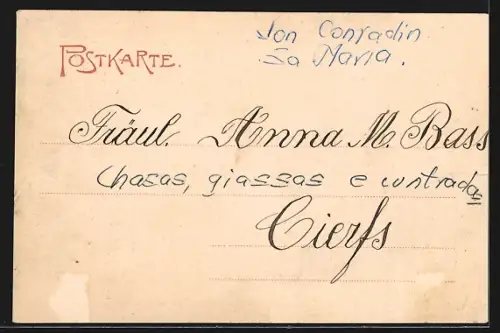 Jon Conradin
Sa Maria.
POSTKARTE.
Fräul. Anna M. Bass
Chasas, giassas e contradas
Cierfs